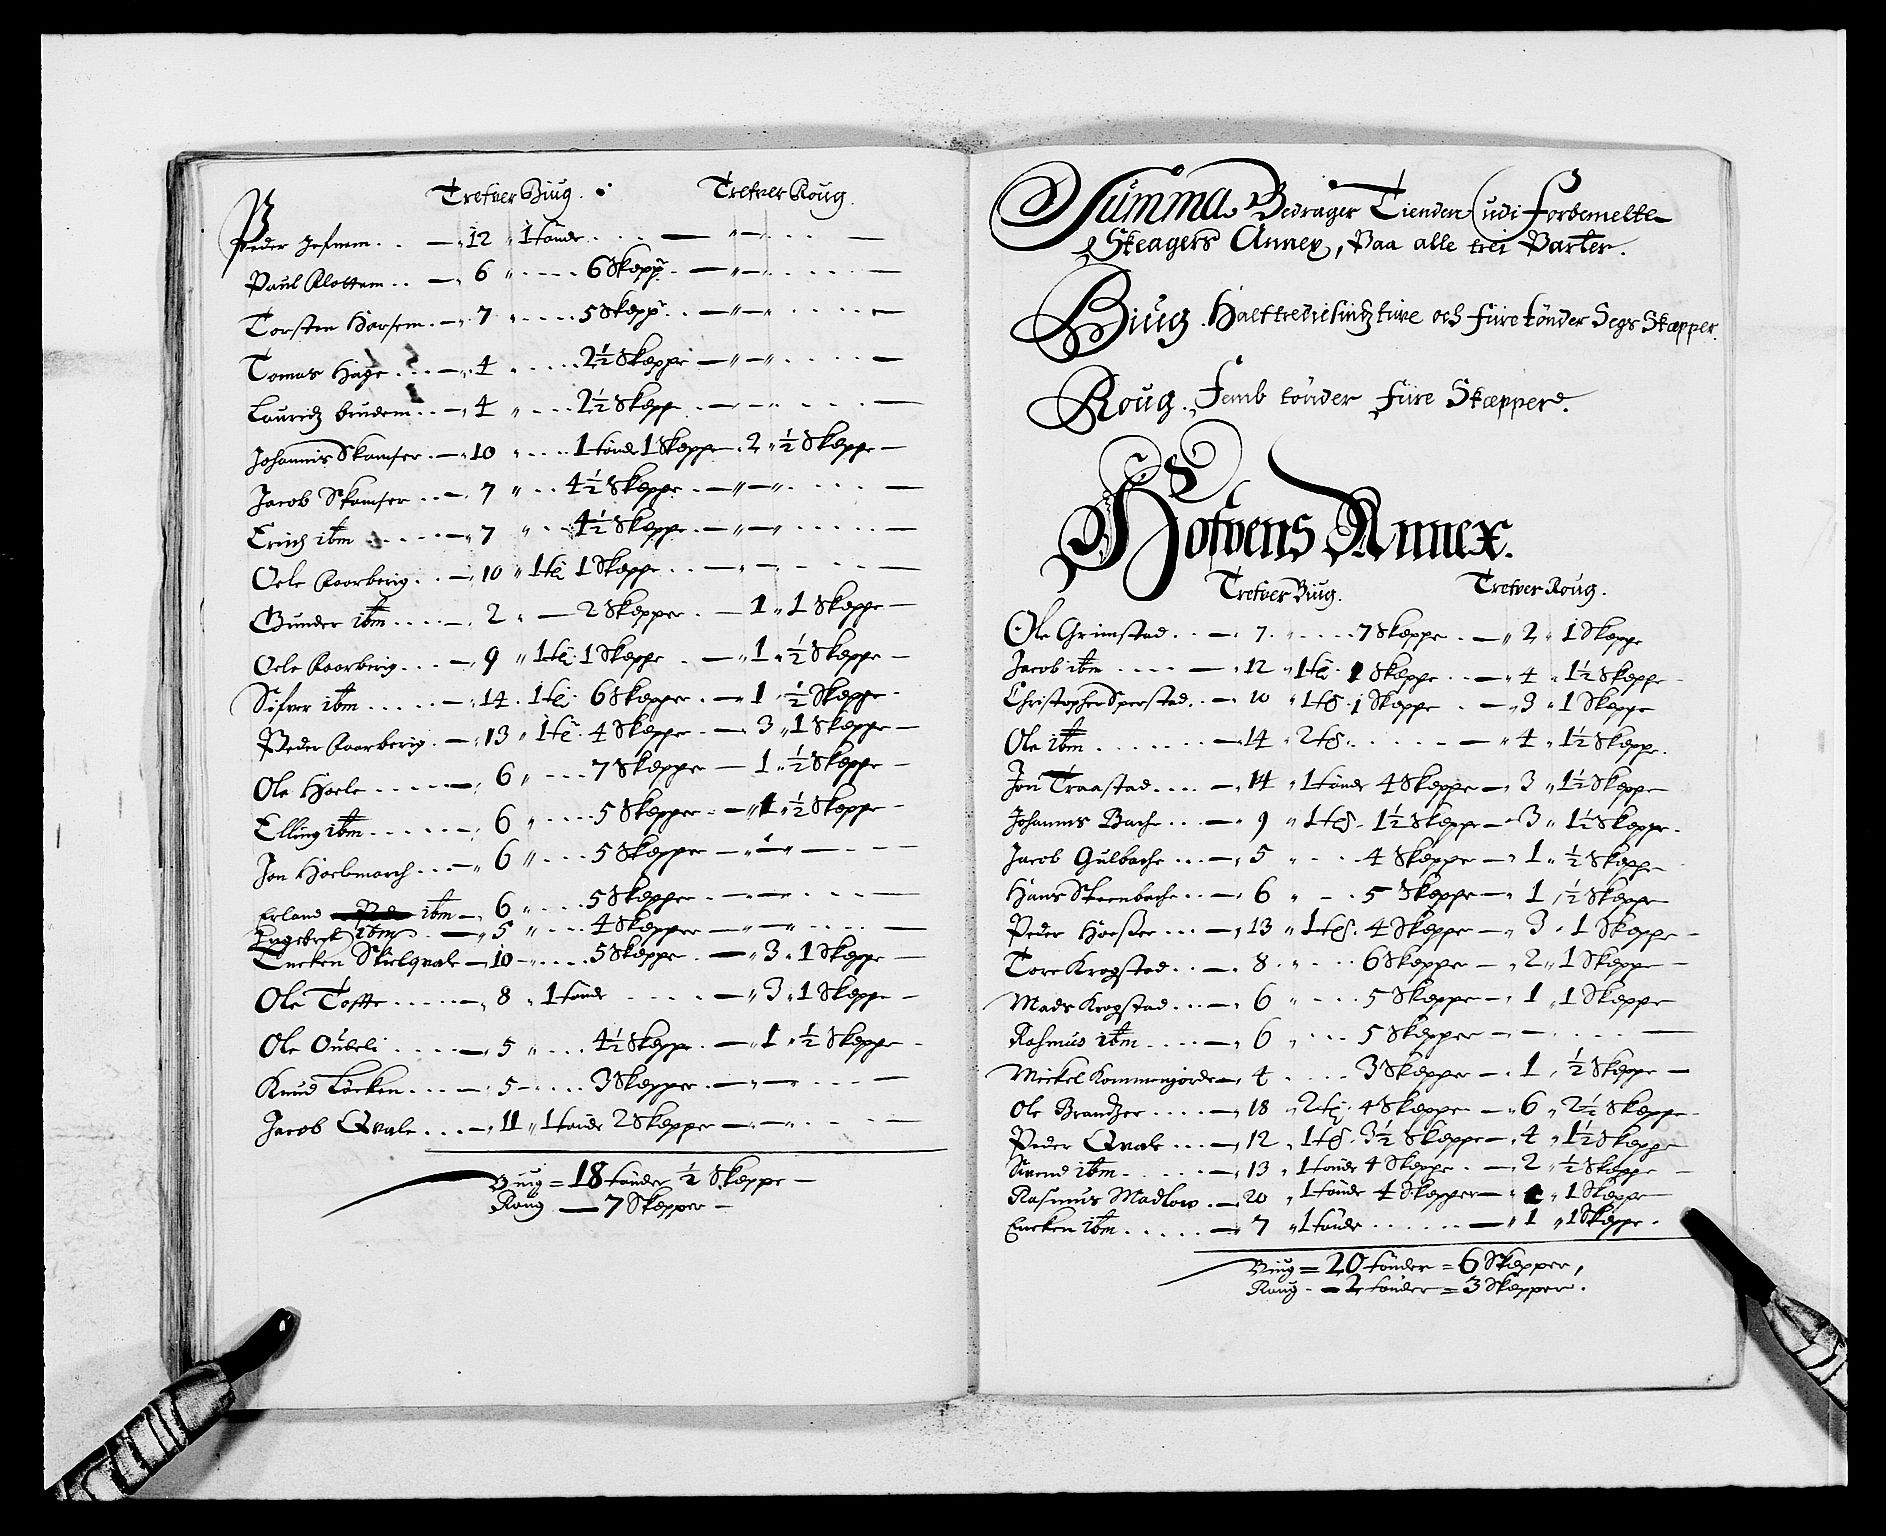 Trefver Biug. Trefver Roug.
Peder Jefnem .. — 12 „ 1 tönde .... — „ — „ ... —
Paul Klottem .. — 6 „ .... 6 Skepp. — „ — „ .... —
Torsten Horsem .. — 7 „ .... 5 Skepp. — „ — „ .... —
Tomas Hage .... — 4 .... 2½ Skeppe — „ — „ .... —
Lauridz brudem .. — 4 „ .... 2½ Skepp .. — .... —
Johannis Skamfer .. — 10 „ .... 1 tönde 1 Skeppe . 2 „ ½ Skeppe —
Jacob Skamfer ... — 7 „ .. 4½ Skeppe .. — „ — „ .... —
Erich ibm ..... — 7 „ .. 4½ Skeppe . — „ — ..... —
Oele Raarberig .. — 10 „ 1 tö 1 Skeppe .. — „ — .... —
Gunder ibm .... — 2 „ — 2 Skepper . — 1 „ 1 Skeppe —
Oele Raarberig ... — 9 „ 1 tö 1 Skeppe . — „ 1 „ ½ Skeppe —
Sifver ibm ..... — 14 . 1 tö . 6 Skepper . — 1 „ ½ Skeppe -
Peder Raarberig . — 13 „ 1 tö . 4 Skeppe . — 3 „ 1 Skeppe —
Ole Hoele ..... — 6 „ .... 7 Skepper — 1 „ ½ Skeppe —
Elling ibm ..... — 6 „ .... 5 Skepper . — „ 1 „ ½ Skeppe -
Jon Hoelsmarch ... — „ 6 „ .... 5 Skepper — „ — „ — ... —
Erland ibm — 6 „ .... 5 Skepper — .... —
Engebret ibm . — „ 5 „ .... 4 Skepper — „ — „ ... —
Encken Skielqvale — 10 — .... 5 Skeppe . — „ 3 „ 1 Skeppe —
Ole Toffte ..... — „ 8 „ 1 tönde .... — „ 3 „ 1 Skeppe —
Ole Oubeli .... — „ 5 „ .... 4½ Skeppe . — „ 1 „ ½ Skeppe -
Knud Löcken .... — 5 — .... 3 Skepper . — „ — ... —
Jacob Qvale ... — „ 11 „ 1 tönde 2 Skepper — „ — „ ... —
Biug = 18 tönder ½ Skeppe —
Roug — 7 Skepper —
Summa Bedrager Tienden udi forbemelte
Skeagers Annex, Paa alle trei Parter.
Biug. Halftrediesindztiuve och fiire tönder Segs Skepper.
Roug. Femb tönder fiire Skepper.
Hofvens Annex.
Trefver Biug. Trefver Roug.
Ole Grimstad .. — 7 . „ .... 7 Skeppe .. — „ 2 „ 1 Skeppe
Jacob ibm .... — 12 „ 1 tö . 1 Skeppe .. — „ 4 „ 1½ Skeppe -
Christopher Sperstad .. — 10 „ 1 tö . 1 Skeppe . — „ 3 „ 1 Skeppe
Ole ibm ....... — 14 „ 2 tö ..... — „ 4 „ 1½ Skeppe .
Jon Traastad .... — 14 „ 1 tönde 4 Skeppe — „ 3 „ 1½ Skeppe —
Johannis Bache ... — 9 „ 1 tö . 1½ Skeppe — „ 3 „ 1½ Skeppe .
Jacob Gulbache ... — 5 „ .. 4 Skeppe — „ 1 „ ½ Skeppe
Hans Steenbache .. — 6 „ - . 5 Skeppe — „ 1 „ ½ Skeppe
Peder Hoeßer ... — „ 13 „ 1 tö . 4 Skeppe — „ 3 „ 1 Skeppe —
Tore Krogstad .. — 8 . „ ... 6 Skeppe — „ 2 „ 1 Skeppe —
Mads Krogstad .. — 6 „ ... 5 Skeppe — „ 1 „ 1 Skeppe
Rasmus ibm .... — 6 „ ... 5 Skepper — — .... —
Meckel Kommengorde — „ 4 .... 3 Skepper — . 1 „ ½ Skeppe —
Ole Brandzer .... — 18 „ 2 tö . 4 Skeppe — „ 6 „ 2½ Skeppe -
Peder Qvale ... — „ 12 „ 1 tö . 3½ Skeppe — „ 4 „ 1½ Skeppe
Svend ibm ..... — „ 13 „ 1 tönde 4 Skeppe . — „ 2 „ ½ Skeppe —
Rasmus Madlow . — 20 „ 1 tönde 4 Skepper — „ „ 1 Skeppe —
Encken ibm ..... — 7 „ 1 tönde ...... — „ 1 „ 1 Skeppe .
Biug = 20 tönder = 6 Skepper,
Roug - — 2 tönder = 3 Skepper .